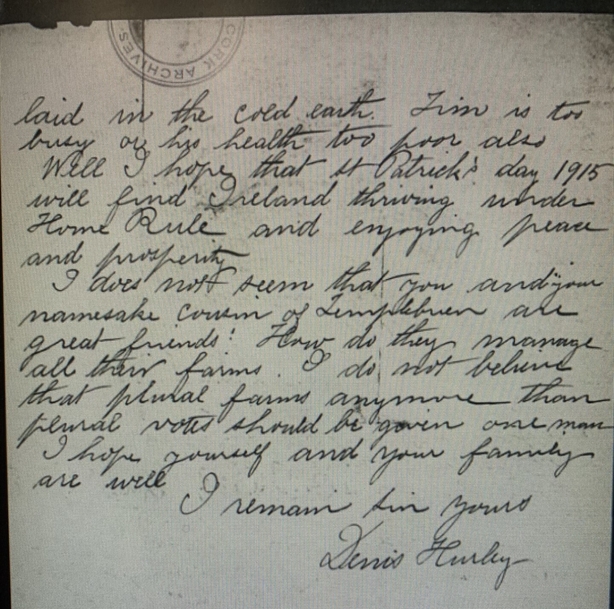 CORK ARCHIVES
laid in the cold earth. Tim is too
busy or his health too poor also
Well I hope that st Patrick's day 1915
will find Ireland thriving under
Home Rule and enjoying peace
and prosperity
I does not seem that you and your
namesake cousin of Templebrien are
great friends! How do they manage
all their farms. I do not believe
that plural farms anymore than
plural votes should be given one man
I hope yourself and your family
are well
I remain sin yours
Denis Hurley